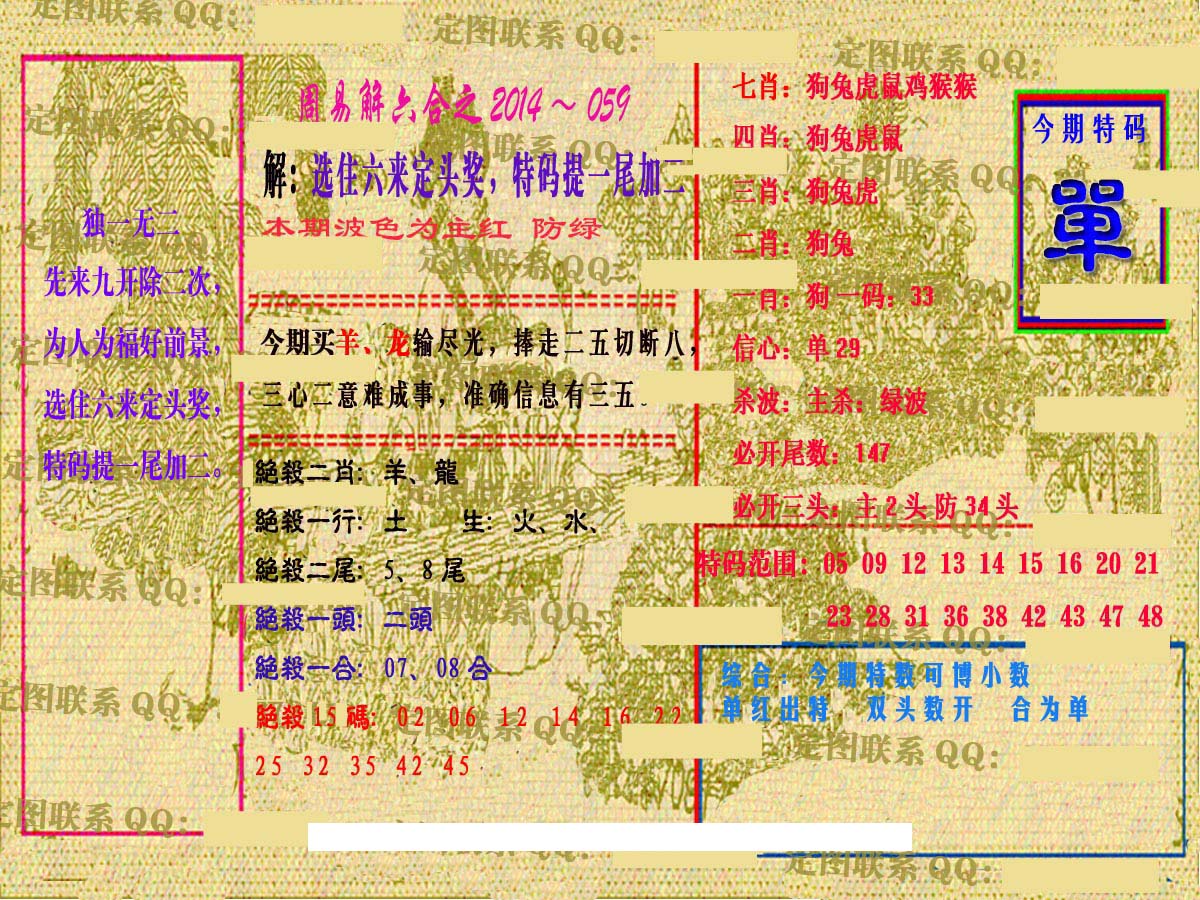 定图联系 QQ:
周易解六合之 2014～059
解：选住六来定头奖，特码提一尾加二
本期波色为主红 防绿
独一无二
先来九开除二次，
为人为福好前景，
选住六来定头奖，
特码提一尾加二。
今期买羊、龙输尽光，捧走二五切断八，
三心二意难成事，准确信息有三五。
絕殺二肖：羊、龍
絕殺一行：土 生：火、水、
絕殺二尾：5、8 尾
絕殺一頭：二頭
絕殺一合：07、08 合
絕殺 15 碼：02 06 12 14 16 22
25 32 35 42 45
七肖：狗兔虎鼠鸡猴猴
四肖：狗兔虎鼠
三肖：狗兔虎
二肖：狗兔
一肖：狗 一码：33
信心：单 29
杀波：主杀：绿波
必开尾数：147
必开三头：主 2 头 防 34 头
今期特码
單
特码范围：05 09 12 13 14 15 16 20 21
23 28 31 36 38 42 43 47 48
综合：今期特数可博小数
单红出特 双头数开 合为单